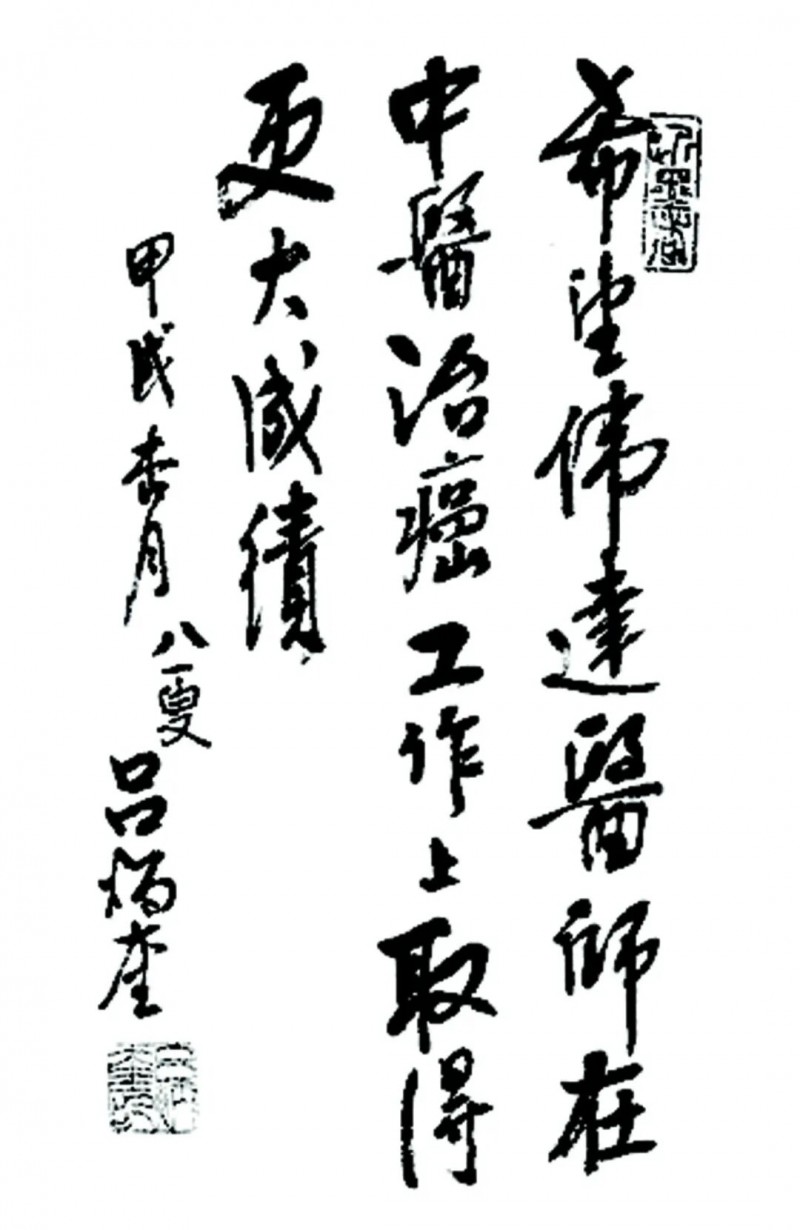 希望偉達醫師在
中醫治癌工作上取得
更大成績
甲戌杏月
八一叟
呂炳奎